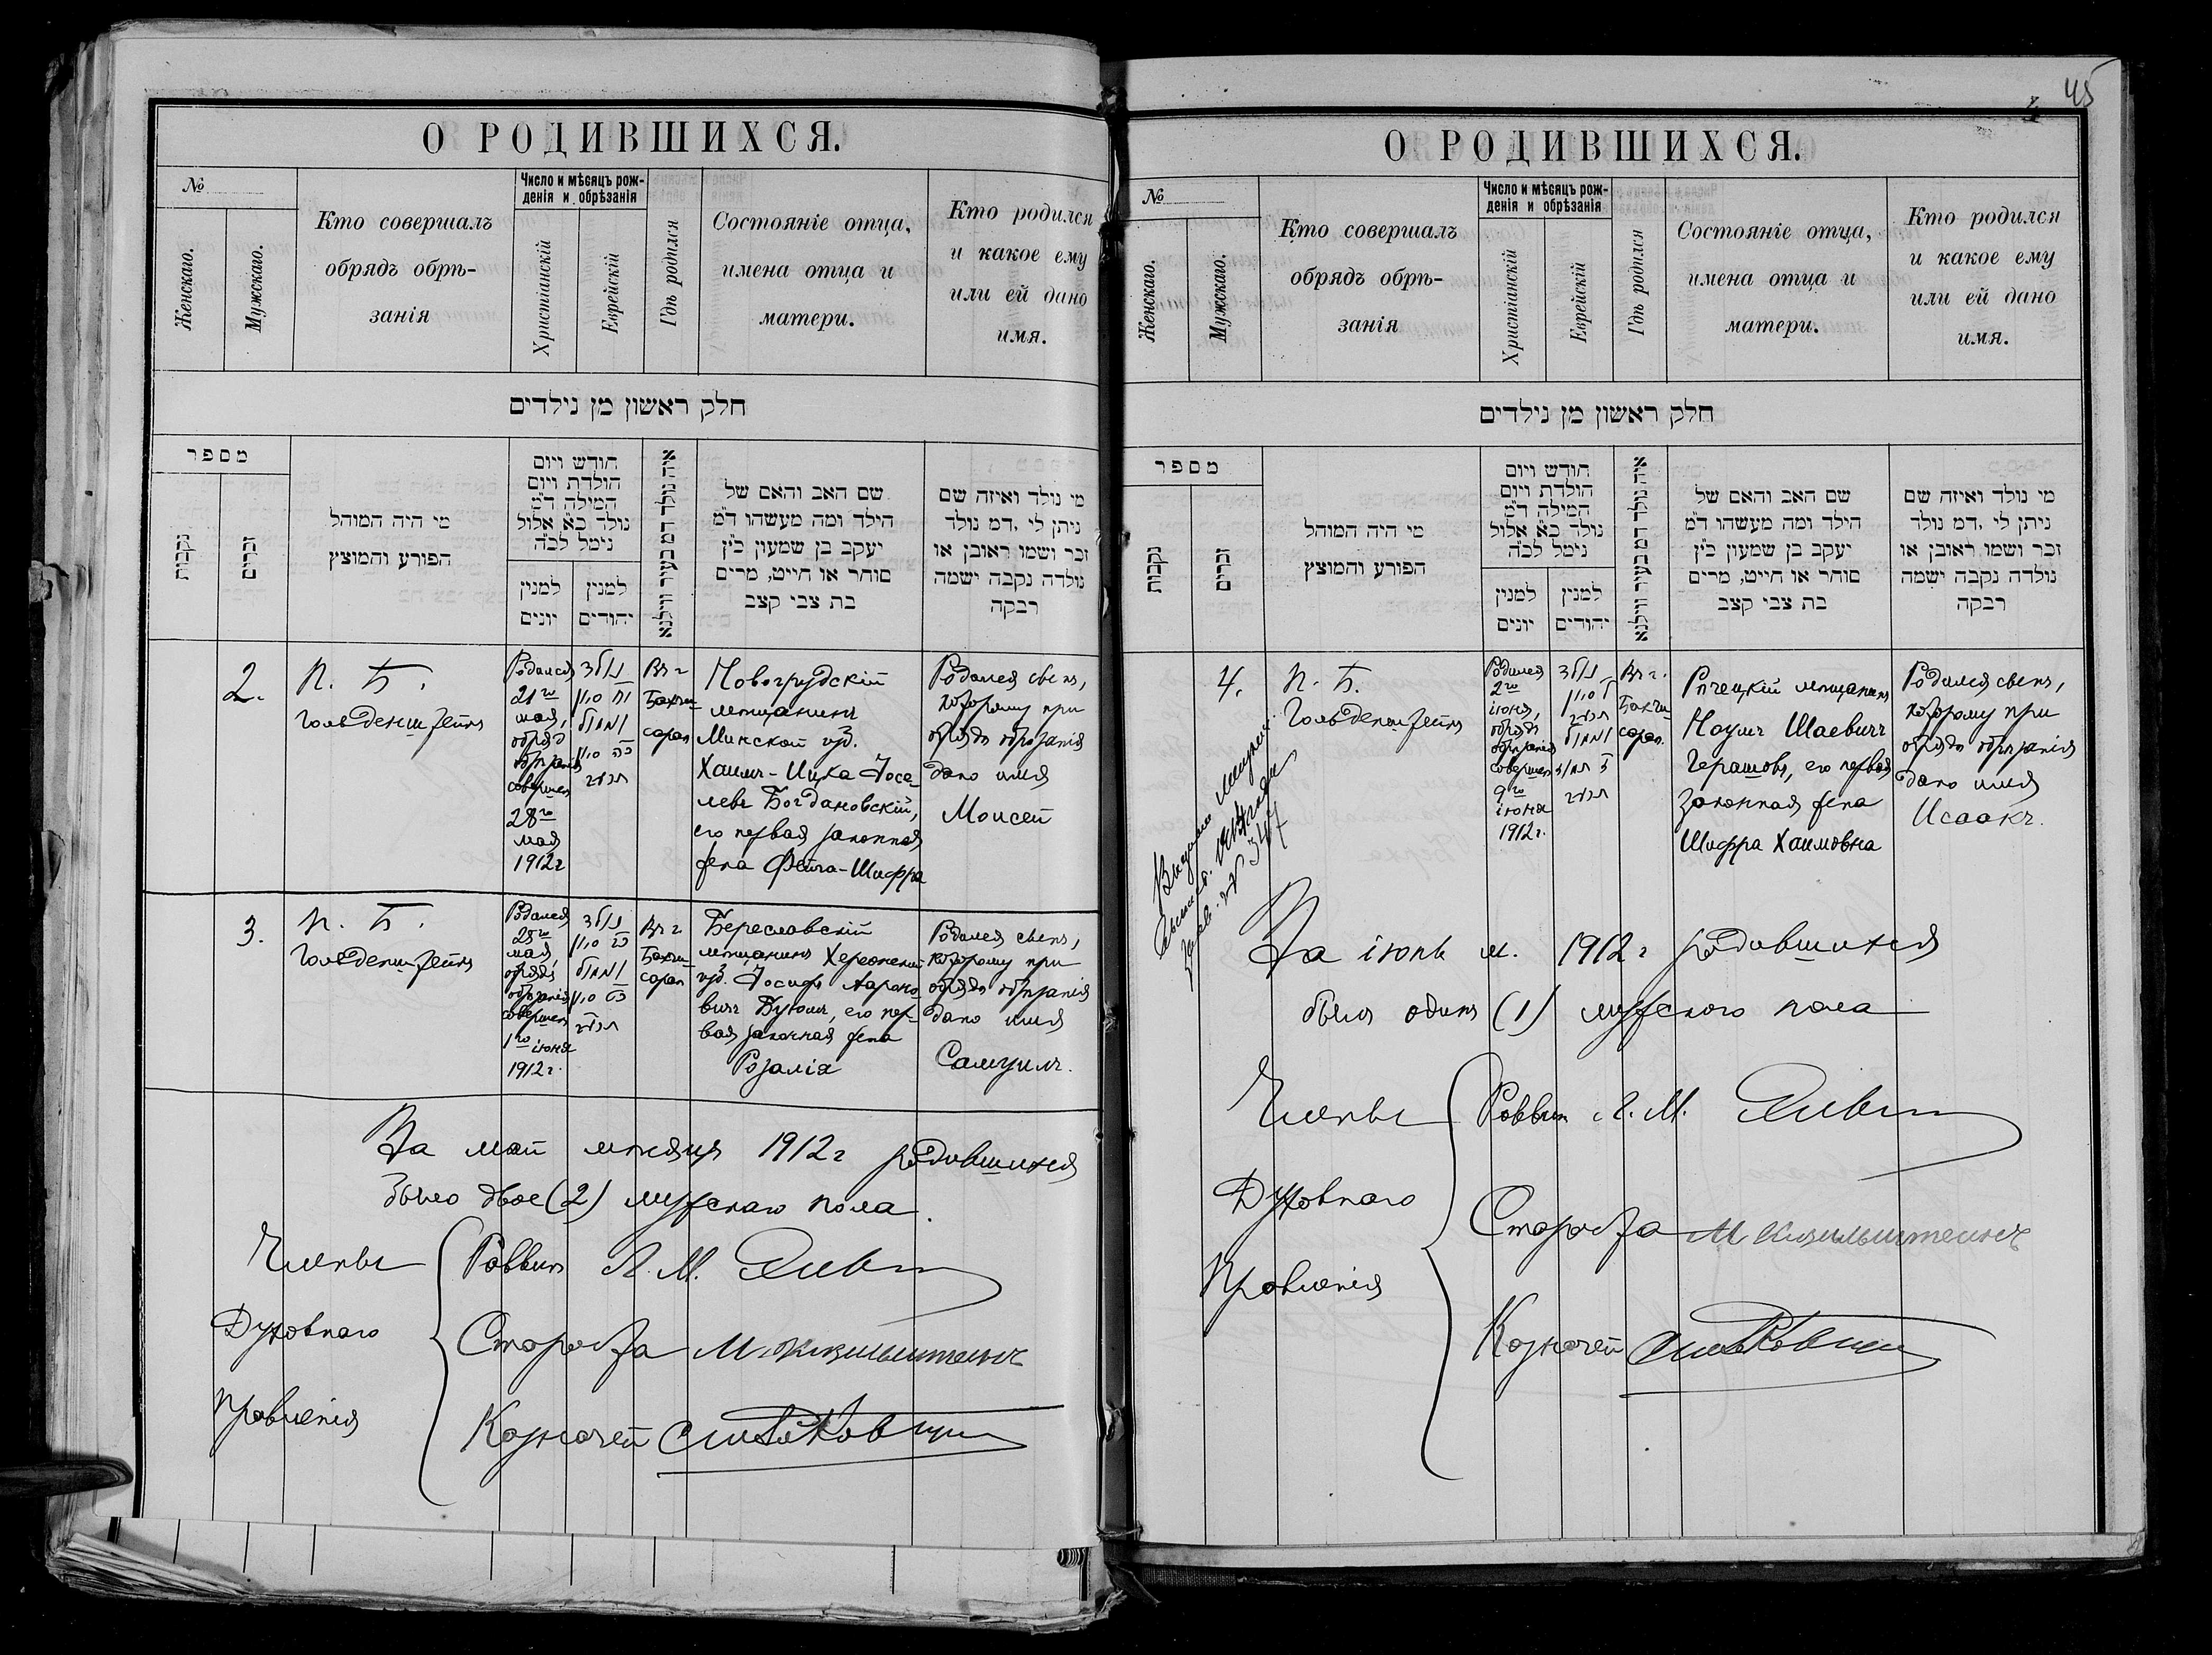 О РОДИВШИХСЯ.
№
Женскаго.
Мужскаго.
Кто совершалъ
обрядъ обрѣ-
занія
Число и мѣсяцъ рож-
денія и обрѣзанія
Христіанскій
Еврейскій
Гдѣ родился
Состояніе отца,
имена отца и
матери.
Кто родился
и какое ему
или ей дано
имя.
חלק ראשון מן נילדים
מספר
נקבות
זכרים
מי היה המוהל
הפורע והמוצץ
חודש ויום
הולדת ויום
המילה ד״מ
נולד כ״א אלול
נימל לכ״ה
למנין
יונים
למנין
יהודים
איה נולד דמ בעיר ווילנא
שם האב והאם של
הילד ומה מעשהו ד״מ
יעקב בן שמעון כ״ץ
סוחר או חייט, מרים
בת צבי קצב
מי נולד ואיזה שם
ניתן לי ,דמ נולד
זכר ושמו ראובן או
נולדה נקבה ישמה
רבקה
2.
П. Б.
Гольденштейнъ
Родился
21го
мая,
обрядъ
обрѣзанія
совершен
28го
мая
1912г
נולד
סיון
ונמול
כה סיון
תרע״ב
Въ г.
Бахчи-
сарай
Новогрудскій
мѣщанинъ
Минской губ.
Хаимъ-Ицка Іосе-
левъ Богдановскій,
его первая законная
жена Фейга-Шифра
Родился сынъ,
которому при
обрядѣ обрѣзанія
дано имя
Моисей
3.
П. Б.
Гольденштейнъ
Родился
25го
мая,
обрядъ
обрѣзанія
совершен
1го іюня
1912г.
נולד
סיון
ונמול
סיון
תרע״ב
Въ г.
Бахчи-
сарай
Береславскій
мѣщанинъ Херсонской
губ. Іосифъ Аароно-
вичъ Бухштъ, его пер-
вая законная жена
Розалія
Родился сынъ,
которому при
обрядѣ обрѣзанія
дано имя
Самуилъ.
За май мѣсяцъ 1912г родившихся
было двое (2) мужскаго пола.
Члены
Духовнаго
Правленія
Раввинъ Л. М.
Староста М. Кизильштейнъ
Казначей
45
О РОДИВШИХСЯ.
№
Женскаго.
Мужскаго.
Кто совершалъ
обрядъ обрѣ-
занія
Число и мѣсяцъ рож-
денія и обрѣзанія
Христіанскій
Еврейскій
Гдѣ родился
Состояніе отца,
имена отца и
матери.
Кто родился
и какое ему
или ей дано
имя.
חלק ראשון מן נילדים
מספר
נקבות
זכרים
מי היה המוהל
הפורע והמוצץ
חודש ויום
הולדת ויום
המילה ד״מ
נולד כ״א אלול
נימל לכ״ה
למנין
יונים
למנין
יהודים
איה נולד דמ בעיר ווילנא
שם האב והאם של
הילד ומה מעשהו ד״מ
יעקב בן שמעון כ״ץ
סוחר או חייט, מרים
בת צבי קצב
מי נולד ואיזה שם
ניתן לי ,דמ נולד
זכר ושמו ראובן או
נולדה נקבה ישמה
רבקה
4.
П. Б.
Гольденштейнъ
Родился
2го
іюня,
обрядъ
обрѣзанія
совершен
9го
іюня
1912г.
נולד
סיון
תרע״ב
ונמול
תמוז
תרע״ב
Въ г.
Бахчи-
сарай.
Рѣчецкій мѣщанинъ
Наумъ Шаевичъ
Герашовъ, его первая
законная жена
Шифра Хаимовна
Родился сынъ,
которому при
обрядѣ обрѣзанія
дано имя
Исаакъ.
Выдана
№ 347
За іюнь м. 1912г родившихся
былъ одинъ (1) мужского пола
Члены
Духовнаго
Правленія
Раввинъ Л. М.
Староста М Кизильштейнъ
Казначей